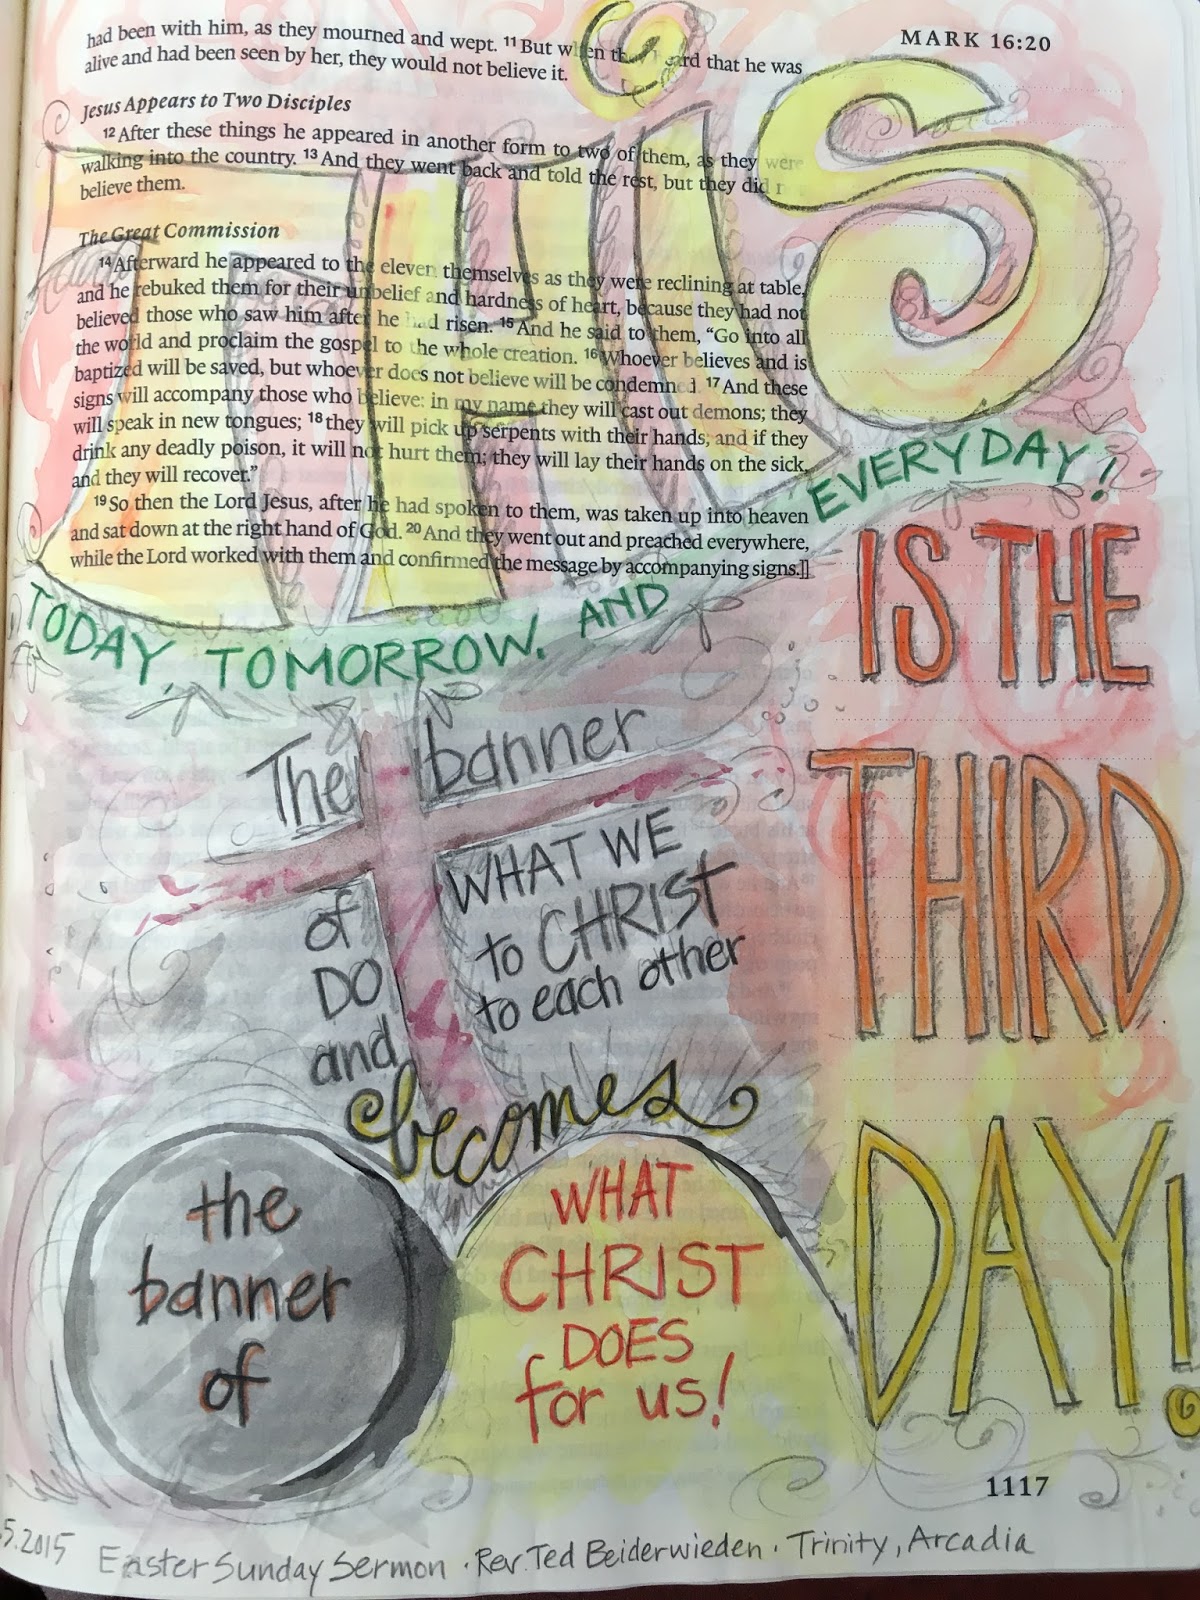 MARK 16:20
had been with him, as they mourned and wept. 11 But when they heard that he was
alive and had been seen by her, they would not believe it.
Jesus Appears to Two Disciples
12 After these things he appeared in another form to two of them, as they were
walking into the country. 13 And they went back and told the rest, but they did
believe them.
The Great Commission
14 Afterward he appeared to the eleven themselves as they were reclining at table,
and he rebuked them for their unbelief and hardness of heart, because they had not
believed those who saw him after he had risen. 15 And he said to them, “Go into all
the world and proclaim the gospel to the whole creation. 16 Whoever believes and is
baptized will be saved, but whoever does not believe will be condemned. 17 And these
signs will accompany those who believe: in my name they will cast out demons; they
will speak in new tongues; 18 they will pick up serpents with their hands; and if they
drink any deadly poison, it will not hurt them; they will lay their hands on the sick,
and they will recover.”
19 So then the Lord Jesus, after he had spoken to them, was taken up into heaven
and sat down at the right hand of God. 20 And they went out and preached everywhere,
while the Lord worked with them and confirmed the message by accompanying signs.]]
THiS
TODAY, TOMORROW, AND EVERY DAY!
IS THE
THIRD
DAY!
The banner
of WHAT WE
DO to CHRIST
and to each other
becomes
the
banner
of
WHAT
CHRIST
DOES
for us!
1117
5.2015 Easter Sunday Sermon · Rev. Ted Beiderwieden · Trinity, Arcadia